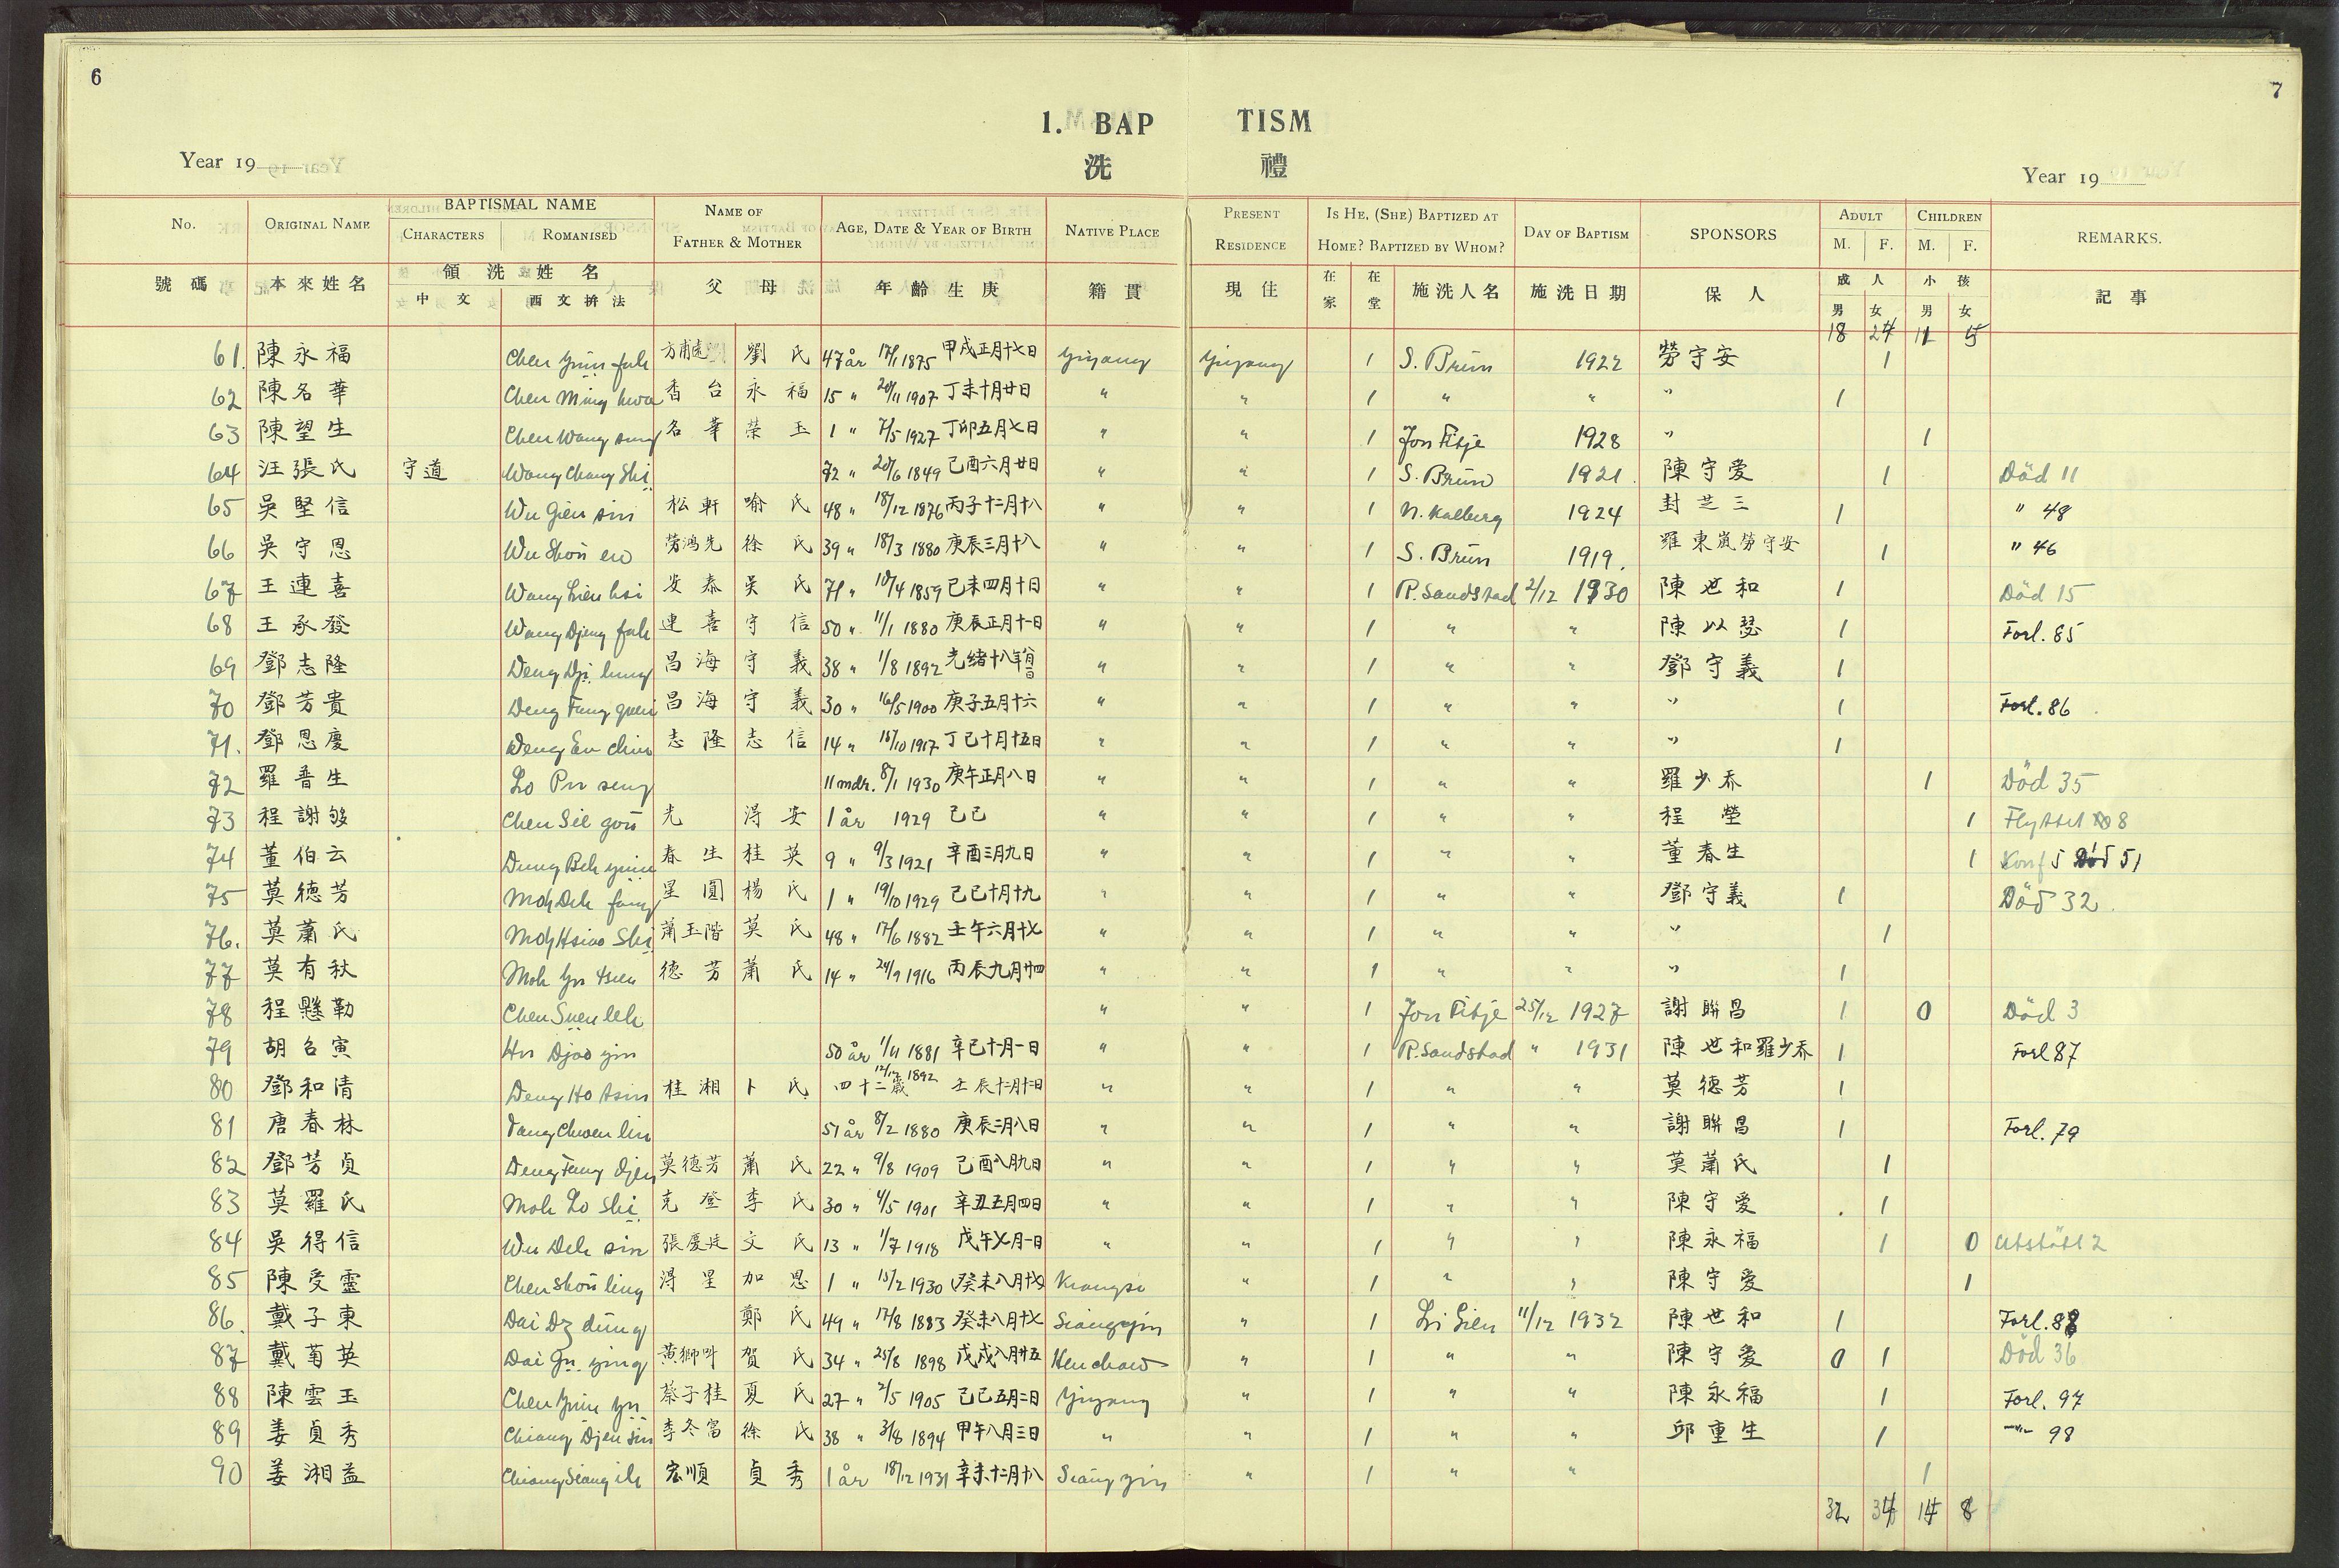 6
7
1. BAP TISM
洗 禮
Year 19
Year 19
No. ORIGINAL NAME BAPTISMAL NAME CHARACTERS ROMANISED NAME OF FATHER & MOTHER AGE, DATE & YEAR OF BIRTH NATIVE PLACE PRESENT RESIDENCE IS HE, (SHE) BAPTIZED AT HOME? BAPTIZED BY WHOM? DAY OF BAPTISM SPONSORS ADULT M. F. CHILDREN M. F. REMARKS.
號碼 本來姓名 領洗姓名 中文 西文拚法 父 母 年齡生庚 籍貫 現住 在家 在堂 施洗人名 施洗日期 保人 成人 男 女 小孩 男 女 記事
18 24 11 5
61. 陳永福 Chen Yuin fuh 劉氏 47 år 17/1 1875 甲戌正月十七日 Yiyang Yiyang 1 S. Brün 1922 勞守安 1
62 陳名華 Chen Ming hwa 香台 永福 15 " 20/11 1907 丁未十月廿日 " " 1 " " " 1
63 陳望生 Chen Wang seng 名華 榮玉 1 " 7/5 1927 丁卯五月七日 " " 1 Jon Fitje 1928 " 1
64 汪張氏 守道 Wang Chang Shi 72 " 20/6 1849 己酉六月廿日 " " 1 S. Brün 1921. 陳守爱 1 Död 11
65 吳堅信 Wu Gien sin 松軒 喻氏 48 " 18/12 1876 丙子十二月十八 " " 1 N. Kalberg 1924 封芝三 1 " 48
66 吳守恩 Wu Shou en 勞鴻先 徐氏 39 " 18/3 1880 庚辰三月十八 " " 1 S. Brün 1919. 羅東嵐勞守安 1 " 46
67 王連喜 Wang Lien hsi 安泰 吳氏 71 " 10/4 1859 己未四月十日 " " 1 R. Sandstad 2/12 1930 陳世和 1 Död 15
68 王承發 Wang Djeng fah 連喜 守信 50 " 11/1 1880 庚辰正月十一日 " " 1 " " 陳以瑟 1 Forl. 85
69 鄧志隆 Deng Dji lung 昌海 守義 38 " 1/8 1892 光緒十八年 " " 1 " " 鄧守義 1
70 鄧芳貴 Deng Fang guei 昌海 守義 30 " 16/5 1900 庚子五月十六 " " 1 " " " 1 Forl. 86
71. 鄧恩慶 Deng En chin 志隆 志信 14 " 15/10 1917 丁已十月十五日 " " 1 " " " 1
72 羅普生 Lo Pu seng 11 mdr. 8/1 1930 庚午正月八日 " " 1 " " 羅少乔 1 Död 35
73 程謝够 Chen Sie gou 光 淂安 1 år 1929 己已 " " 1 " " 程瑩 1 Flyttet 8
74 董伯云 Dung Beh yuin 春生 桂英 9 " 9/3 1921 辛酉三月九日 " " 1 " " 董春生 1 Konf 5 Död 51
75 莫德芳 Moh Deh fang 星圓 楊氏 1 " 19/10 1929 己已十月十九 " " 1 " " 鄧守義 1 Död 32.
76. 莫蕭氏 Moh Hsiao Shi 蕭玉階 莫氏 48 " 17/6 1882 壬午六月十七 " " 1 " " " 1
77 莫有秋 Moh Yu tsiu 德芳 蕭氏 14 " 24/9 1916 丙辰九月廿四 " " 1 " " " 1
78 程懸勒 Chen Suen leh " " 1 Jon Fitje 25/12 1927 謝聨昌 1 0 Död 3
79 胡召寅 Hu Djao yin 50 år 1/11 1881 辛已十一月一日 " " 1 R. Sandstad " 1931 陳世和羅少乔 1 Forl 87
80 鄧和清 Deng Ho tsin 桂湘 卜氏 四十二歲 12/12 1892 壬辰十二月十二日 " " 1 " " 莫德芳 1
81 唐春林 Tang Chuen lin 51 år 8/2 1880 庚辰二月八日 " " 1 " " 謝聨昌 1 Forl. 79
82 鄧芳貞 Deng Fang djen 莫德芳 蕭氏 22 " 9/8 1909 己酉八月九日 " " 1 " " 莫蕭氏 1
83 莫羅氏 Moh Lo Shi 克登 李氏 30 " 4/5 1901 辛丑五月四日 " " 1 " " 陳守爱 1
84 吳得信 Wu Deh sin 張慶廷 文氏 13 " 1/7 1918 戊午七月一日 " " 1 " " 陳永福 1 0 Utstött 2
85 陳受靈 Chen Shou ling 淂星 加恩 1 " 15/2 1930 癸未八月十七 Kiangsi " 1 " " 陳守爱 1
86. 戴子東 Dai Dz dung 鄭氏 49 " 17/8 1883 癸未八月十七 Siangyin " 1 Li Sien 11/12 1932 陳世和 1 Forl. 88
87 戴菊英 Dai Gu ying 賀氏 34 " 25/8 1898 戊戌八月廿五 Henchow " 1 " " 陳守爱 0 1 Död 36
88 陳雲玉 Chen Yuin yu 蔡子桂 夏氏 27 " 2/5 1905 己已五月二日 Yiyang " 1 " " 陳永福 1 Forl. 97
89 姜貞秀 Chiang Djen sin 李冬富 徐氏 38 " 3/8 1894 甲午八月三日 " " 1 " " 邱重生 1 " 98
90 姜湘益 Chiang Siang ih 宏順 貞秀 1 år 18/12 1931 辛未十二月十八 Siangyin " 1 " " 1
32 34 14 8